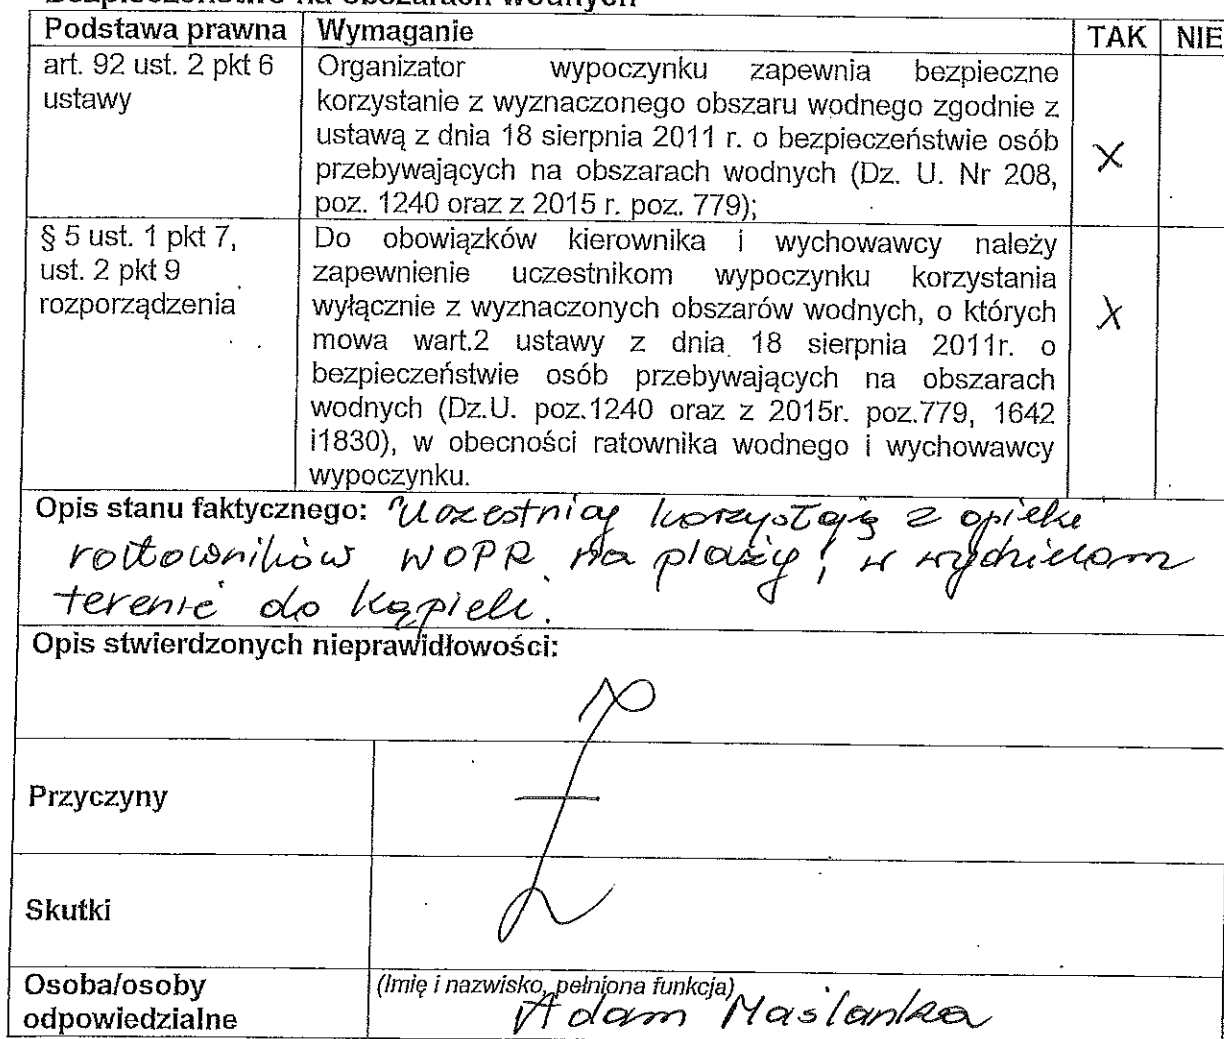 Bezpieczeństwo na obszarach wodnych
Podstawa prawna Wymaganie TAK NIE
art. 92 ust. 2 pkt 6
ustawy
Organizator wypoczynku zapewnia bezpieczne
korzystanie z wyznaczonego obszaru wodnego zgodnie z
ustawą z dnia 18 sierpnia 2011 r. o bezpieczeństwie osób
przebywających na obszarach wodnych (Dz. U. Nr 208,
poz. 1240 oraz z 2015 r. poz. 779);
X
§ 5 ust. 1 pkt 7,
ust. 2 pkt 9
rozporządzenia
Do obowiązków kierownika i wychowawcy należy
zapewnienie uczestnikom wypoczynku korzystania
wyłącznie z wyznaczonych obszarów wodnych, o których
mowa wart.2 ustawy z dnia 18 sierpnia 2011r. o
bezpieczeństwie osób przebywających na obszarach
wodnych (Dz.U. poz.1240 oraz z 2015r. poz.779, 1642
i1830), w obecności ratownika wodnego i wychowawcy
wypoczynku.
X
Opis stanu faktycznego: Uczestnicy korzystają z opieki
ratowników WOPR na plaży, w
terenie do kąpieli.
Opis stwierdzonych nieprawidłowości:
Przyczyny
Skutki
Osoba/osoby
odpowiedzialne
(Imię i nazwisko, pełniona funkcja)
Adam Maślanka